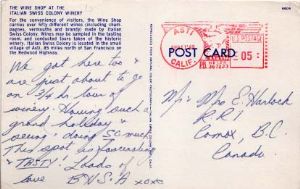 THE WINE SHOP AT THE
ITALIAN SWISS COLONY WINERY
For the convenience of visitors, the Wine Shop
carries over fifty different wines (including cham-
pagnes, vermouths and brandy) made by Italian
Swiss Colony. Wines may be sampled in the tasting
room, and conducted tours are taken through the
winery. Italian Swiss Colony is located in the small
village of Asti, 85 miles north of San Francisco on
the Redwood Highway.
POST CARD
ASTI
CALIF.
U.S. POSTAGE
05
We got here too &
are just about to go
on ½ hr tour of
winery. Having such
grand holiday &
seeing & doing SO much
This spot is fascinating &
"TASTY"! Loads of
love B
xoxo
Mr & Mrs E.
R.R.1
Comox, B.C.
Canada